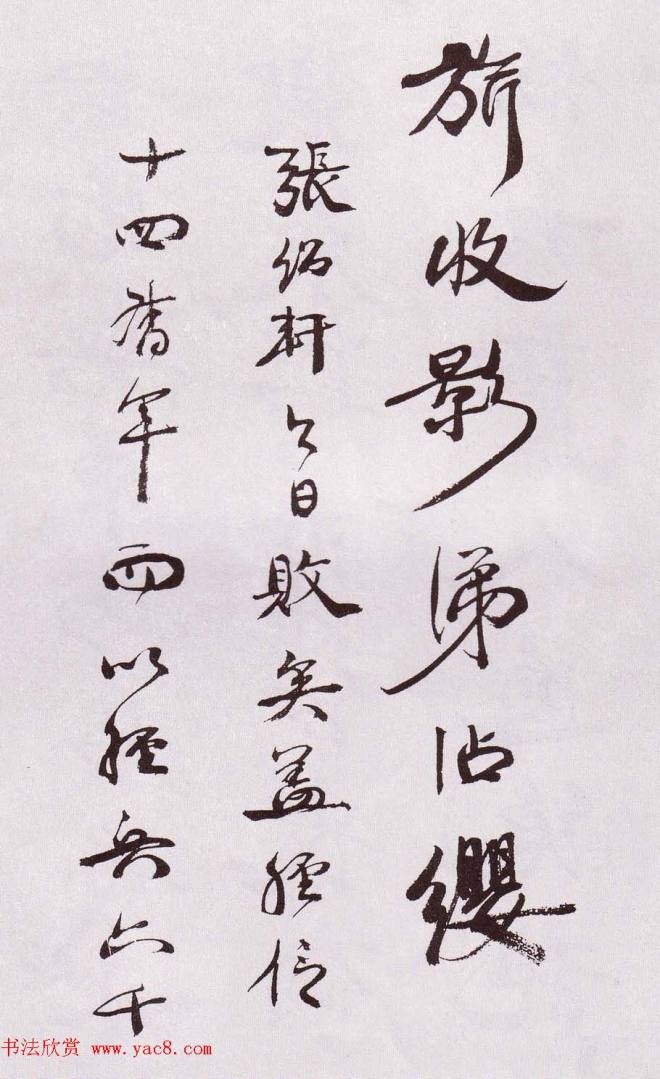 旂收影涕沾纓
張紹軒今日敗矣蓋輕信
十四舊年而以輕兵六千
书法欣赏 www.yac8.com